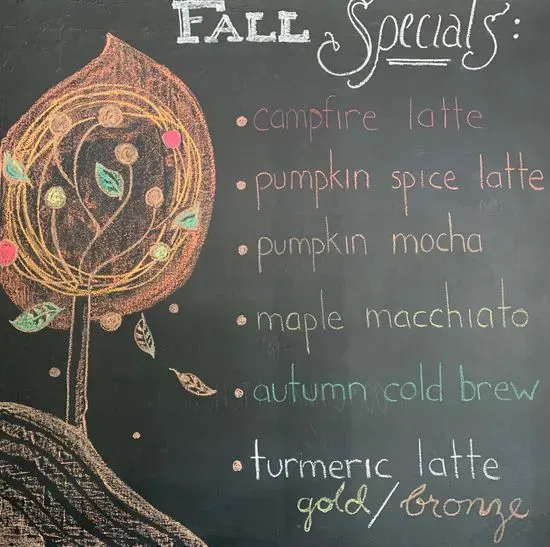 FALL Specials:
• campfire latte
• pumpkin spice latte
• pumpkin mocha
• maple macchiato
• autumn cold brew
• turmeric latte
gold/bronze